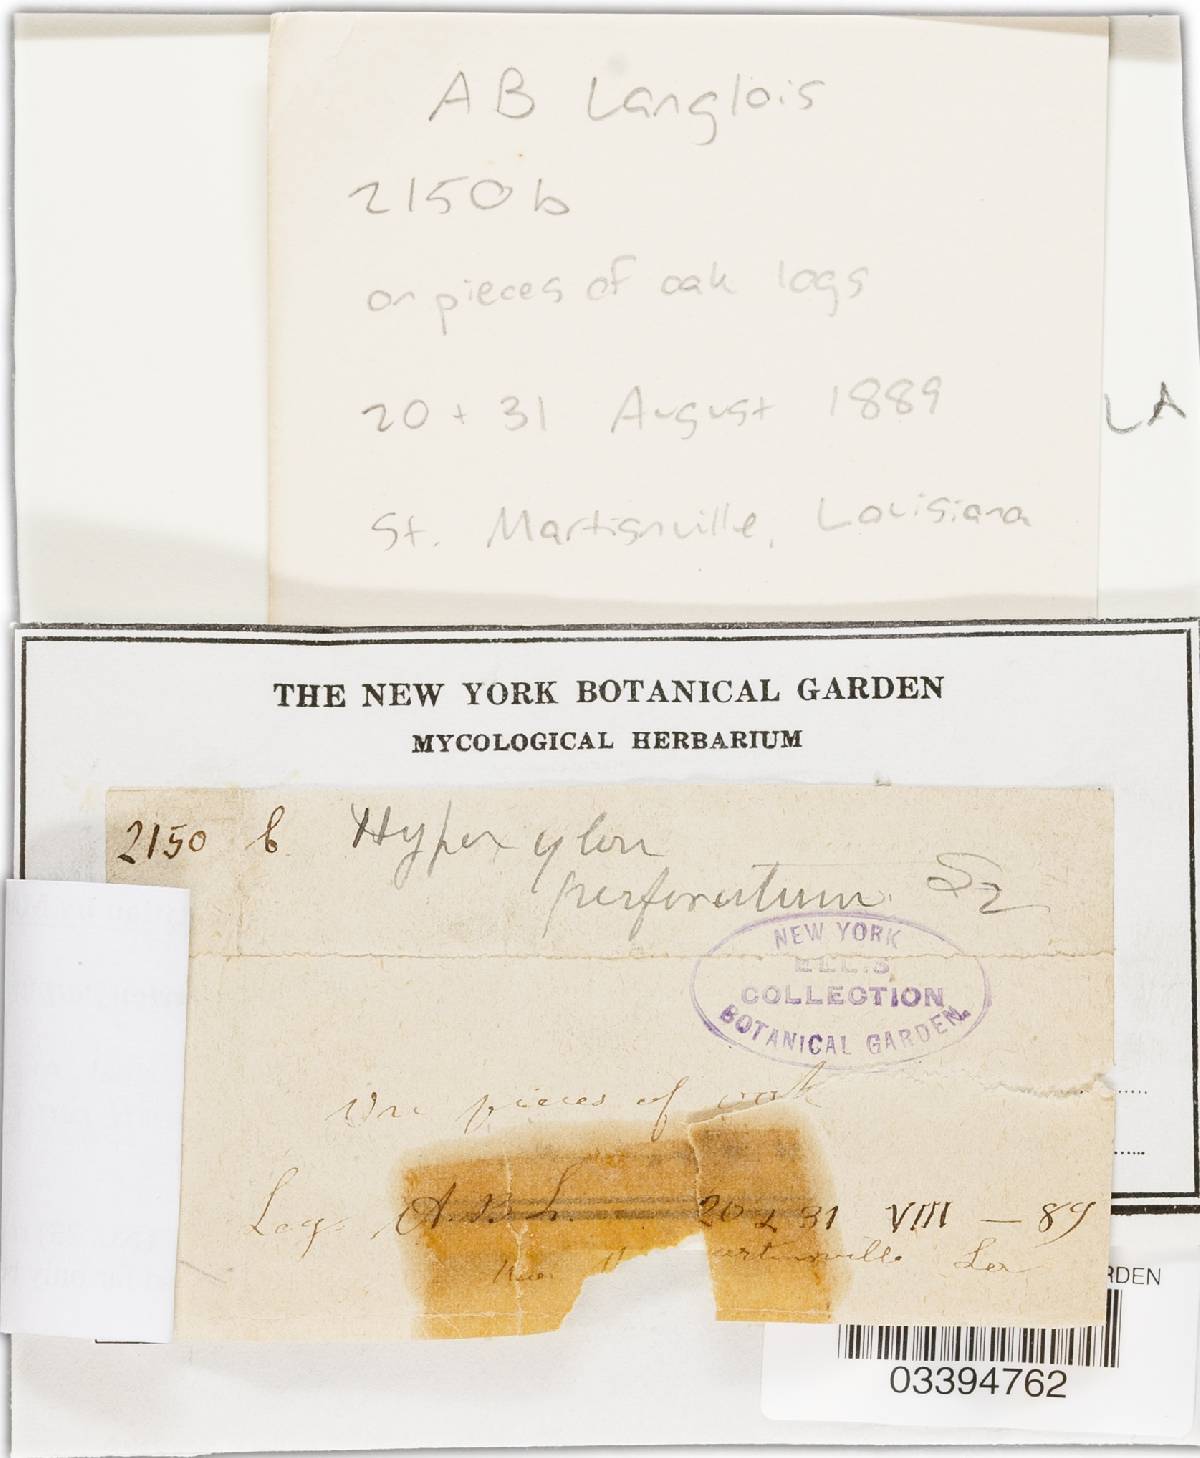 AB Langlois
2150b
on pieces of oak logs
20 + 31 August 1889
LA
St. Martisnville, Louisiana
THE NEW YORK BOTANICAL GARDEN
MYCOLOGICAL HERBARIUM
2150 b. Hypoxylon
perforatum. Sz
NEW YORK
ELLIS
COLLECTION
BOTANICAL GARDEN.
On pieces of oak
Legs A.B.L. 20 & 31 VIII — 89
artinsville La
RDEN
03394762